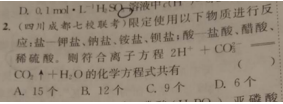 D. 0.1 mol·L⁻¹H₂SO₄溶液中
2. (四川成都七校联考)限定使用以下物质进行反
应:盐—钾盐、钠盐、铵盐、钡盐;酸—盐酸、醋酸、
稀硫酸。则符合离子方程 2H⁺+CO₃²⁻
CO₂↑+H₂O的化学方程式共有 ( )
A. 15个 B. 12个 C. 9个 D. 6个
亚磷酸